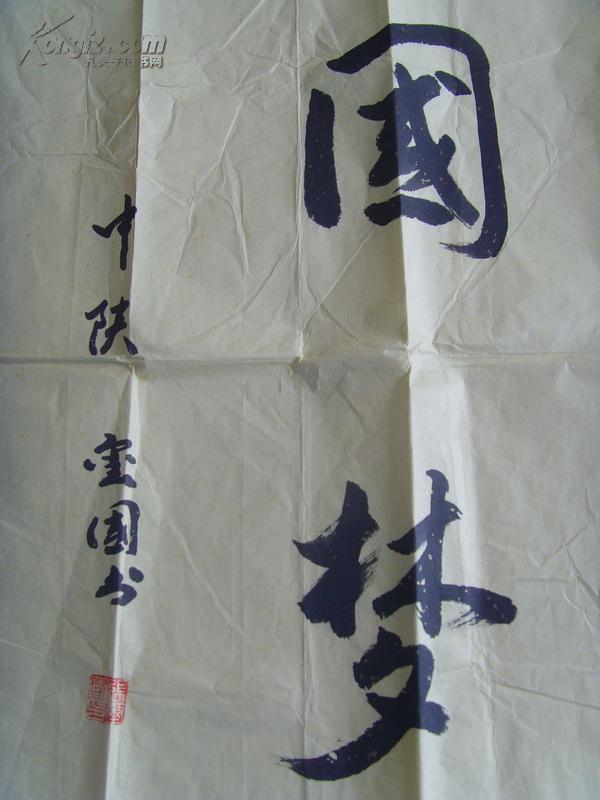 國梦
中陕 宝國书
Kongfz.com
孔夫子旧书网